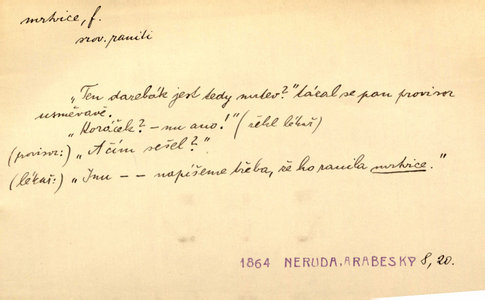 mrtvice, f.
srov. raniti
„Ten darebák jest tedy mrtev?" tázal se pan provisor
usměvavě.
„Horáček? – nu ano!" (řekl lékař)
(provisor:) „A čím sešel?"
(lékař:) „Inu – – napíšeme třeba, že ho ranila mrtvice."
1864 NERUDA, ARABESKY 8, 20.